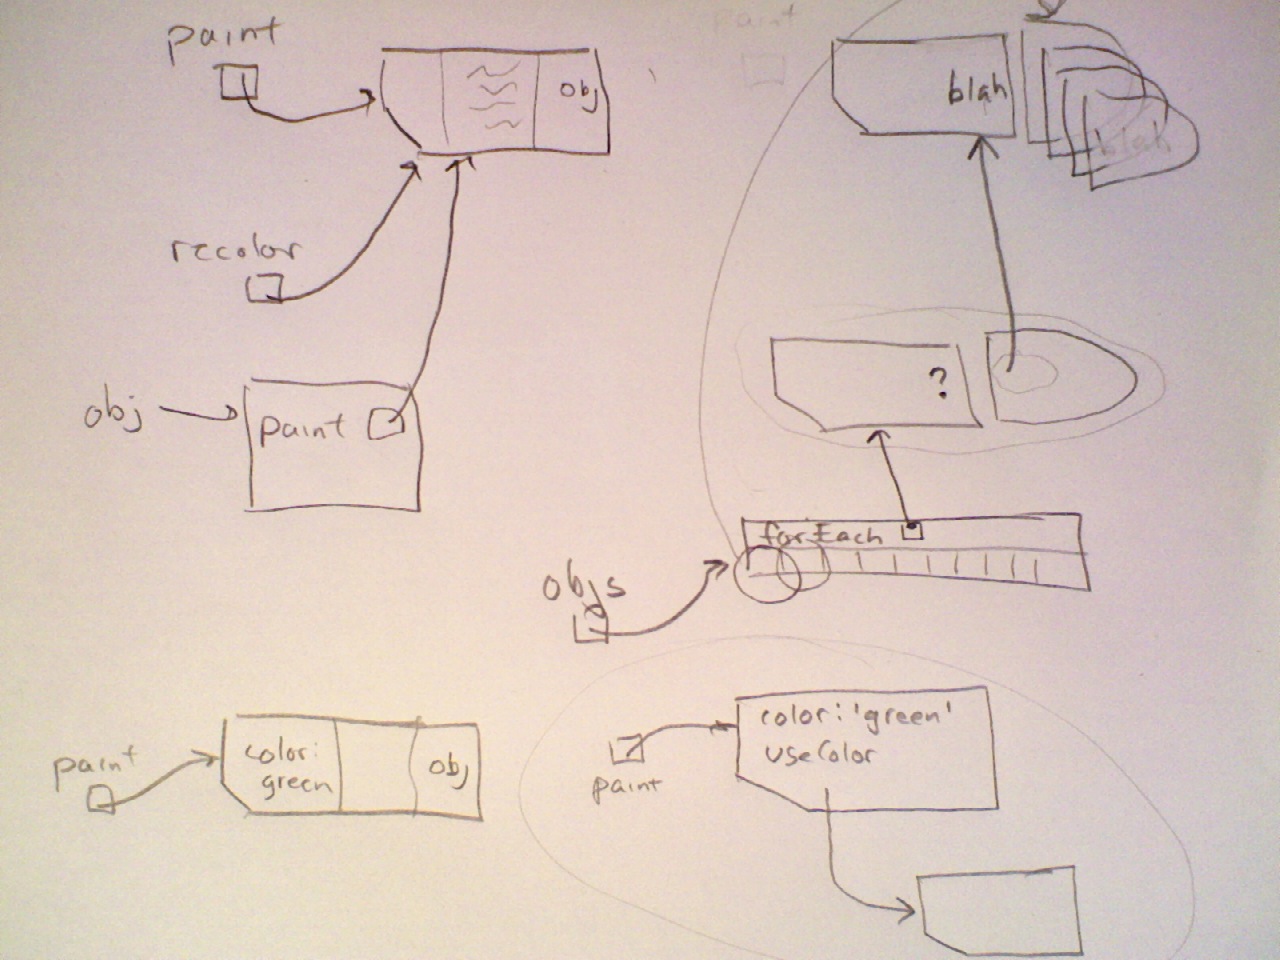 paint
obj
recolor
obj
paint
paint
blah
blah
?
forEach
objs
paint
color:
green
obj
paint
color: 'green'
useColor